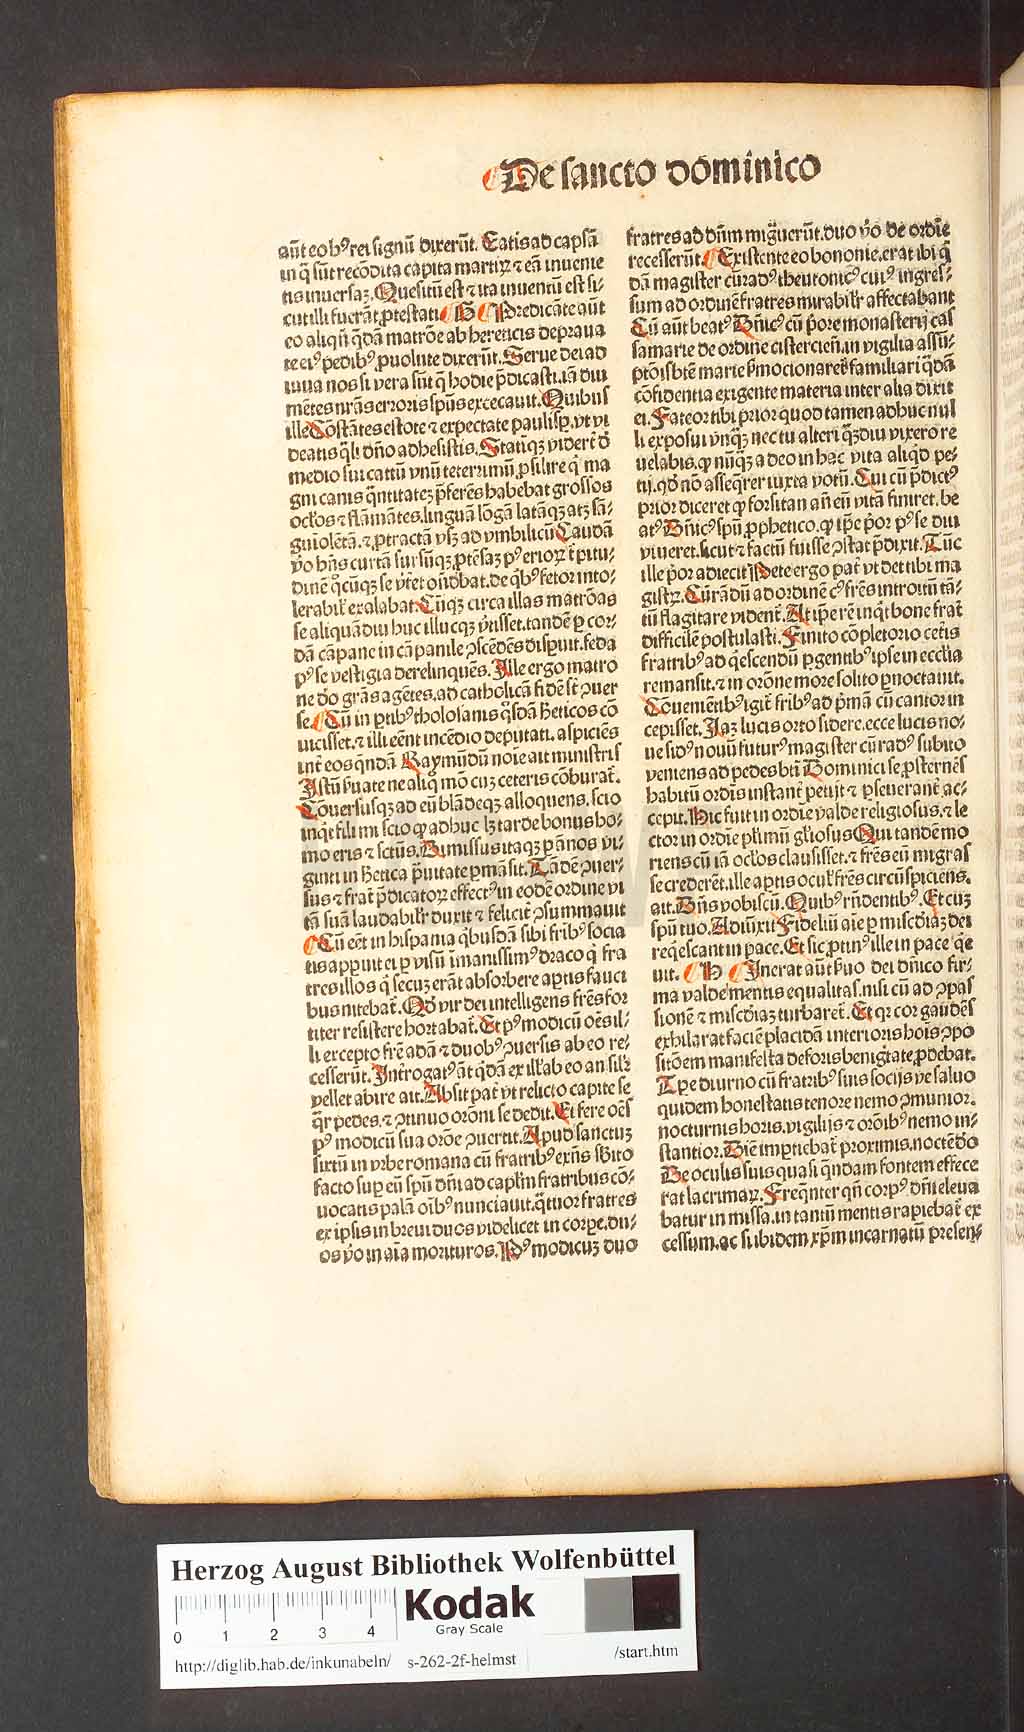 De sancto dominico
aūt eo hꝰ rei signū dixerūt. Eatis ad capsā
in q̄ sūt recōdita capita martiꝝ ⁊ eā inuenie
tis inuersaꝫ. Quesitū est ⁊ ita inuentū est si⸗
cut illi fuerāt ꝓtestati H Predicāte aūt
eo aliqn̄ q̄dā matrōe ab hereticis depraua
te eiꝰ pedibꝰ ꝓuolute dixerūt. Serue dei ad
iuua nos si vera sūt q̄ hodie p̄dicasti. iā diu
mētes nr̄as erroris spūs excecauit. Quibus
ille Cōstātes estote ⁊ expectate paulisꝑ. vt vi
deatis q̄li dn̄o adhesistis. Statiqꝫ viderūt d̄
medio sui catū vnū teterrimū ꝓsilire q̄ ma
gni canis q̄ntitateꝫ p̄ferēs habebat grossos
ocl'os ⁊ flāmātes. linguā lōgā latāqꝫ atqꝫ sā⸗
guiolētā. ⁊ ꝓtractā vsqꝫ ad vmbilicū Caudā
v̄o hn̄s curtā sursūqꝫ ꝓtēsaꝫ pꝰterioꝝ t̄pitu⸗
dinē q̄cūqꝫ se v̄tēt on̄dbat. de qbꝰ fetor into⸗
lerabil'r exalabat Cūqꝫ circa illas matrōas
se aliquādiu huc illucqꝫ v̄tisset. tandē ꝑ cor⸗
dā cāpane in cāpanile ꝯscēdēs disꝑuit. feda
pꝰ se vestigia derelinquēs. Ille ergo matro
ne do grās agētes. ad catholicā fidē st̄ ꝯuer
se. Cū in ꝑtibꝰ tholosanis q̄sdā h̄eticos cō
uicisset. ⁊ illi eēnt incēdio deputati. aspiciēs
int̄ eos q̄ndā Raymūdū noīe ait ministris
Istū ẜuate ne aliq̄ mō cuꝫ ceteris cōburat̄.
Cōuersusqꝫ ad eū blādeqꝫ alloquens. scio
inq̄t fili mi scio ꝙ adhuc lꝫ tarde bonus ho⸗
mo eris ⁊ sctūs. Dimissus itaqꝫ ꝑ ānos vi⸗
ginti in h̄etica p̄uitate ꝑmāsit. Tādē ꝯuer⸗
sus ⁊ frat̄ p̄dicatoꝝ effectꝰ in eodē ordine vi
tā suā laudabil'r duxit ⁊ felicit̄ ꝯsummauit
Cū eēt in hispania qbusdā sibi frībꝰ socia
tis apꝑuit ei ꝑ visū īmanissimꝰ draco q̄ fra
tres illos q̄ secuꝫ erāt absorbere aꝑtis fauci
bus nitebat̄. Qd̄ vir dei intelligens frēs for
titer resistere hortabat̄. Et pꝰ modicū oēs il⸗
li excepto frē adā ⁊ duobꝰ ꝯuersis ab eo re⸗
cesserūt. Introgatꝰ āt q̄dā ex ill' ab eo an sil'r
vellet abire ait. Absit pat̄ vt relicto capite se
q̄r pedes. ⁊ ꝯtinuo orōni se dedit. Et fere oēs
pꝰ modicū sua orōe ꝯuertit. Apud sanctuꝫ
sixtū in vrbe romana cū fratribꝰ exn̄s sbito
facto suꝑ eū spū dn̄i ad capl'm fratribus cō⸗
uocatis palā oībꝰ nunciauit. q̄tuor fratres
ex ipsis in breui duos videlicet in corꝑe. du⸗
os v̄o in aīa morituros. Pꝰ modicuꝫ duo
fratres ad dn̄m migͣuerūt. duo v̄o de ordīe
recesserūt. Existente eo bononie. erat ibi q̄
dā magister cūradꝰ theutonicꝰ cuiꝰ ingres⸗
sum ad ordinē fratres mirabil'r affectabant
Cū aūt beatꝰ Dn̄icꝰ cū p̄ore monasterij cas
samarie de ordine cistercieñ. in vigilia assū⸗
ptōis btē marie ẜmocionaret̄ familiari q̄dā
cōfidentia exigente materia inter alia dixit
ei. Fateor tibi prior quod tamen adhuc nul
li exposui vnqꝫ nec tu alteri qꝫdiu vixero re
uelabis. ꝙ nūqꝫ a deo in hac vita aliqd̄ pe⸗
tij. qd̄ nō asseq̄rer iuxta votū. Cui cū p̄dictꝰ
prior diceret ꝙ forsitan añ eū vitā finiret. be
atꝰ Dn̄icꝰ spū ꝓphetico. ꝙ ip̄e p̄or pꝰ se diu
viueret. sicut ⁊ factū fuisse ꝯstat p̄dixit. Tūc
ille p̄or adiecit Pete ergo pat̄ vt det tibi ma
gistꝝ. Cūradū ad ordinē cꝰ frēs introitū tā⸗
tū flagitare vident̄. At ip̄e rē inq̄t bone frat̄
difficilē postulasti. Finito cōpletorio cet̄is
fratribꝰ ad q̄escendū ꝑgentibꝰ ipse in eccl'ia
remansit. ⁊ in orōne more solito ꝑnoctauit.
Cōueniētibꝰ igit̄ fribꝰ ad p̄mā cū cantor in
cepisset. Iaꝫ lucis orto sidere. ecce lucis no⸗
ue sidꝰ nouū futurꝰ magister cūradꝰ subito
veniens ad pedes bti Dominici se ꝓsternēs
habitū ordīs instant̄ petijt ⁊ ꝑseuerant̄ ac⸗
cepit. Hic fuit in ordīe valde religiosus. ⁊ le
ctor in ordīe pl'imū gl'iosus Qui tandē mo
riens cū iā ocl'os clausisset. ⁊ frēs eū migras
se crederēt. ille aꝑtis ocul' frēs circūspiciens.
ait. Dn̄s vobiscū. Quibꝰ rn̄dentibꝰ. Et cuꝫ
spū tuo. Adiūxit Fidelium aīe ꝑ misc̄diaꝫ dei
req̄escant in pace. Et sic ꝓtinꝰ ille in pace q̄e
uit. H Inerat aūt ẜuo dei dn̄ico fir⸗
ma valde mentis equalitas. nisi cū ad ꝯpas
sionē ⁊ misc̄diaꝫ turbaret̄. Et qꝛ cor gaudēs
exhilarat faciē placidā interioris hoīs ꝯpo
sitōem manifesta deforis benigͥtate ꝓdebat.
Tp̄e diurno cū fratribꝰ suis socijs ve saluo
quidem honestatis tenore nemo ꝯmunior.
nocturnis horis. vigilijs ⁊ orōibꝰ nemo in⸗
stantior. Diē imꝑtiebat̄ proximis. noctē do
De oculis suis quasi q̄ndam fontem effece
rat lacrimaꝝ. Freq̄nter qn̄ corpꝰ dn̄i eleua
batur in missa. in tantū mentis rapiebat̄ ex
cessum. ac si ibidem xp̄m incarnatū presen⸗
Herzog August Bibliothek Wolfenbüttel
Kodak
Gray Scale
0 1 2 3 4
http://diglib.hab.de/inkunabeln/ s-262-2f-helmst /start.htm